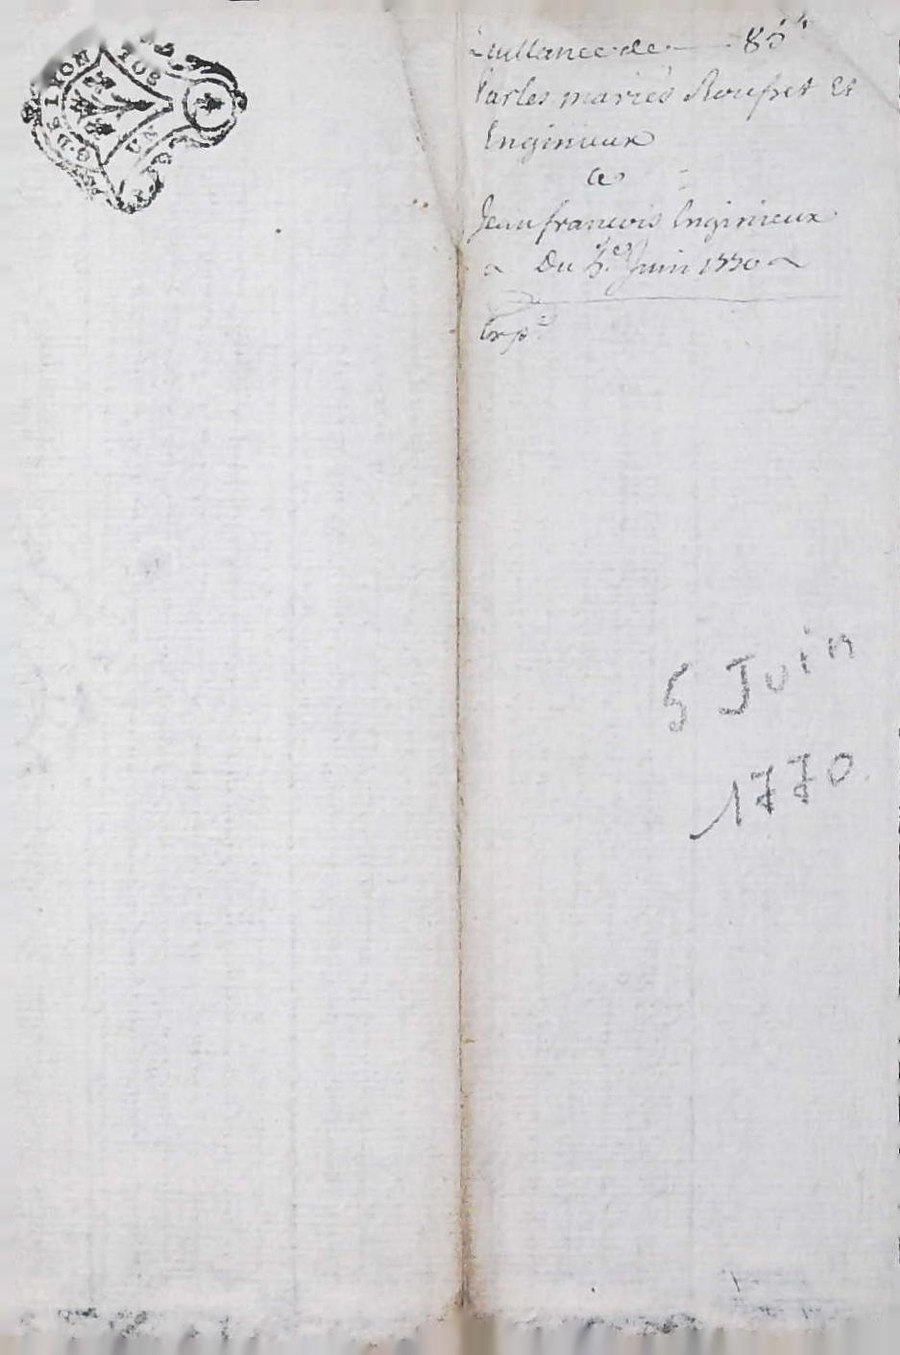 G. DE LYON
Quittance de — 85#
Par les mariés Roufset Et
Enginieux
a
Jean francois Enginieux
Du 5.e Juin 1770
Exp.
5 Juin
1770